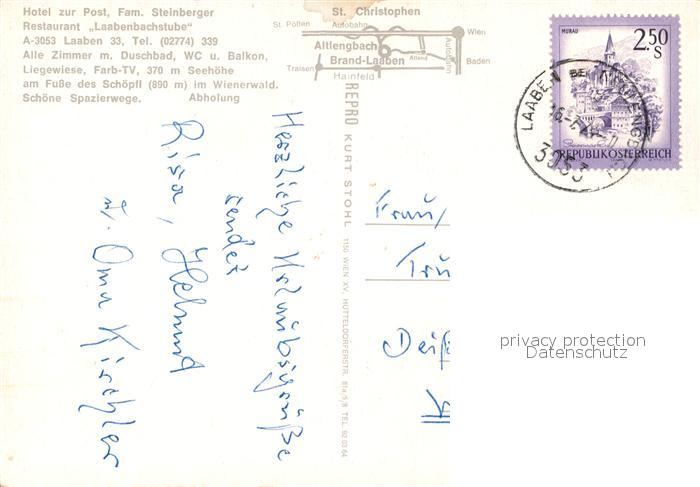 Hotel zur Post, Fam. Steinberger
Restaurant „Laabenbachstube"
A-3053 Laaben 33, Tel. (02774) 339
Alle Zimmer m. Duschbad, WC u. Balkon,
Liegewiese, Farb-TV, 370 m Seehöhe
am Fuße des Schöpfl (890 m) im Wienerwald.
Schöne Spazierwege. Abholung
St. Christophen
St. Pölten Autobahn Wien
Altlengbach
Brand-Laaben
Alland
Autobahn
Baden
Traisen
Hainfeld
REPRO KURT STOHL 1150 WIEN XV, HÜTTELDORFERSTR. 81a/5/8 TEL. 92 03 64
Herzliche Urlaubsgrüße
sendet
Risa, Helmut
u. Oma Kirchler
Frau
MURAU
2.50
S
REPUBLIK ÖSTERREICH
LAABEN BEI
3053
privacy protection
Datenschutz